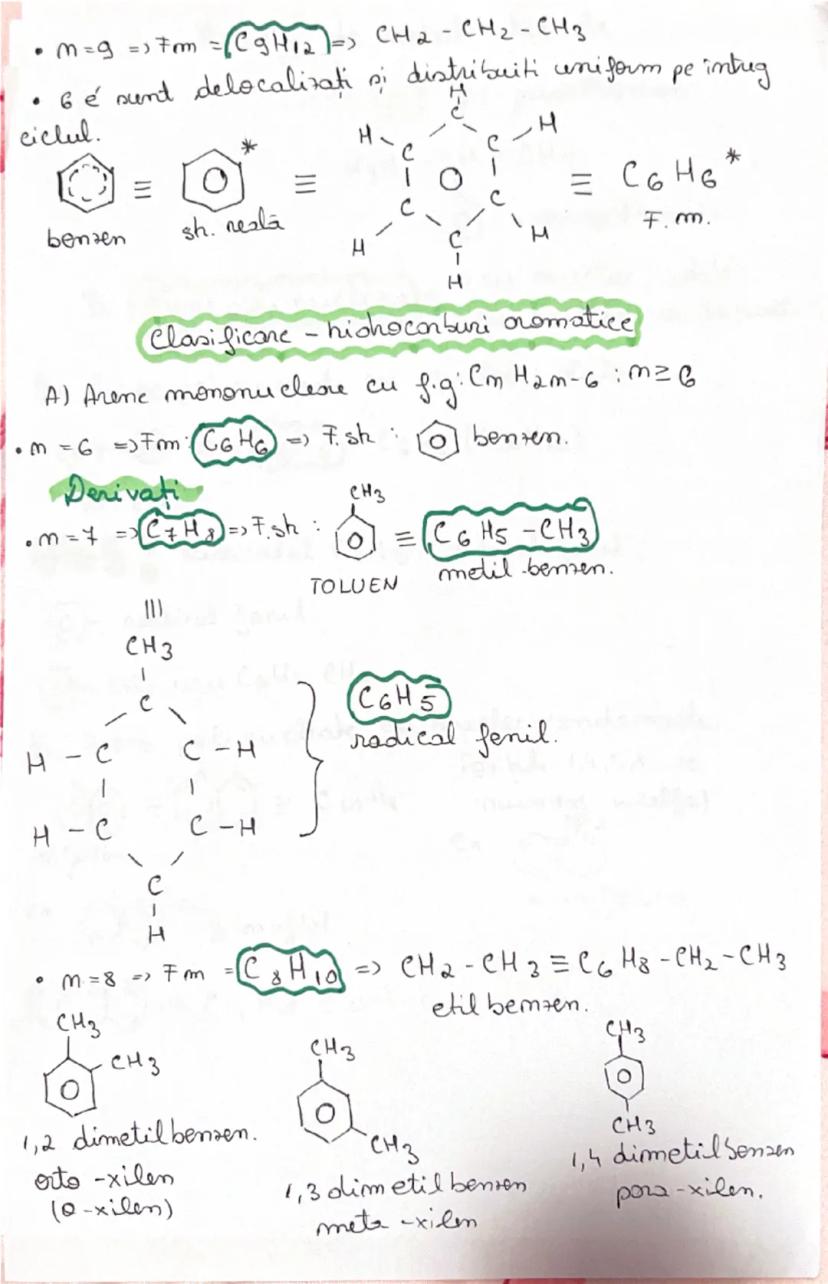 • m=9 => Fm = C9H12 => CH2 - CH2 - CH3
• 6 é sunt delocalizați și distribuiti uniform pe intug
ciclul.
≡ * ≡ H C H C H C C H C H C H ≡ C6 H6 *
benzen sh. reală F. m.
Clasificare - hidrocarburi aromatice
A) Arene mononucleare cu f.g: Cm H2m-6 ; m≥6
• m = 6 => Fm: C6H6 => F.sh : benzen.
Derivați
• m = 7 => C7H8 => F.sh : CH3 ≡ C6 H5 - CH3
TOLUEN metil benzen.
|||
CH3
C
H - C C - H
H - C C - H
C
H
C6H5
radical fenil.
• m=8 => Fm = C8H10 => CH2 - CH3 ≡ C6 H8 - CH2 - CH3
etil benzen.
CH3
CH3
1,2 dimetilbenzen.
orto - xilen
(o-xilen)
CH3
CH3
1,3 dimetilbenzen
meta - xilen
CH3
CH3
1,4 dimetilbenzen
para - xilen.